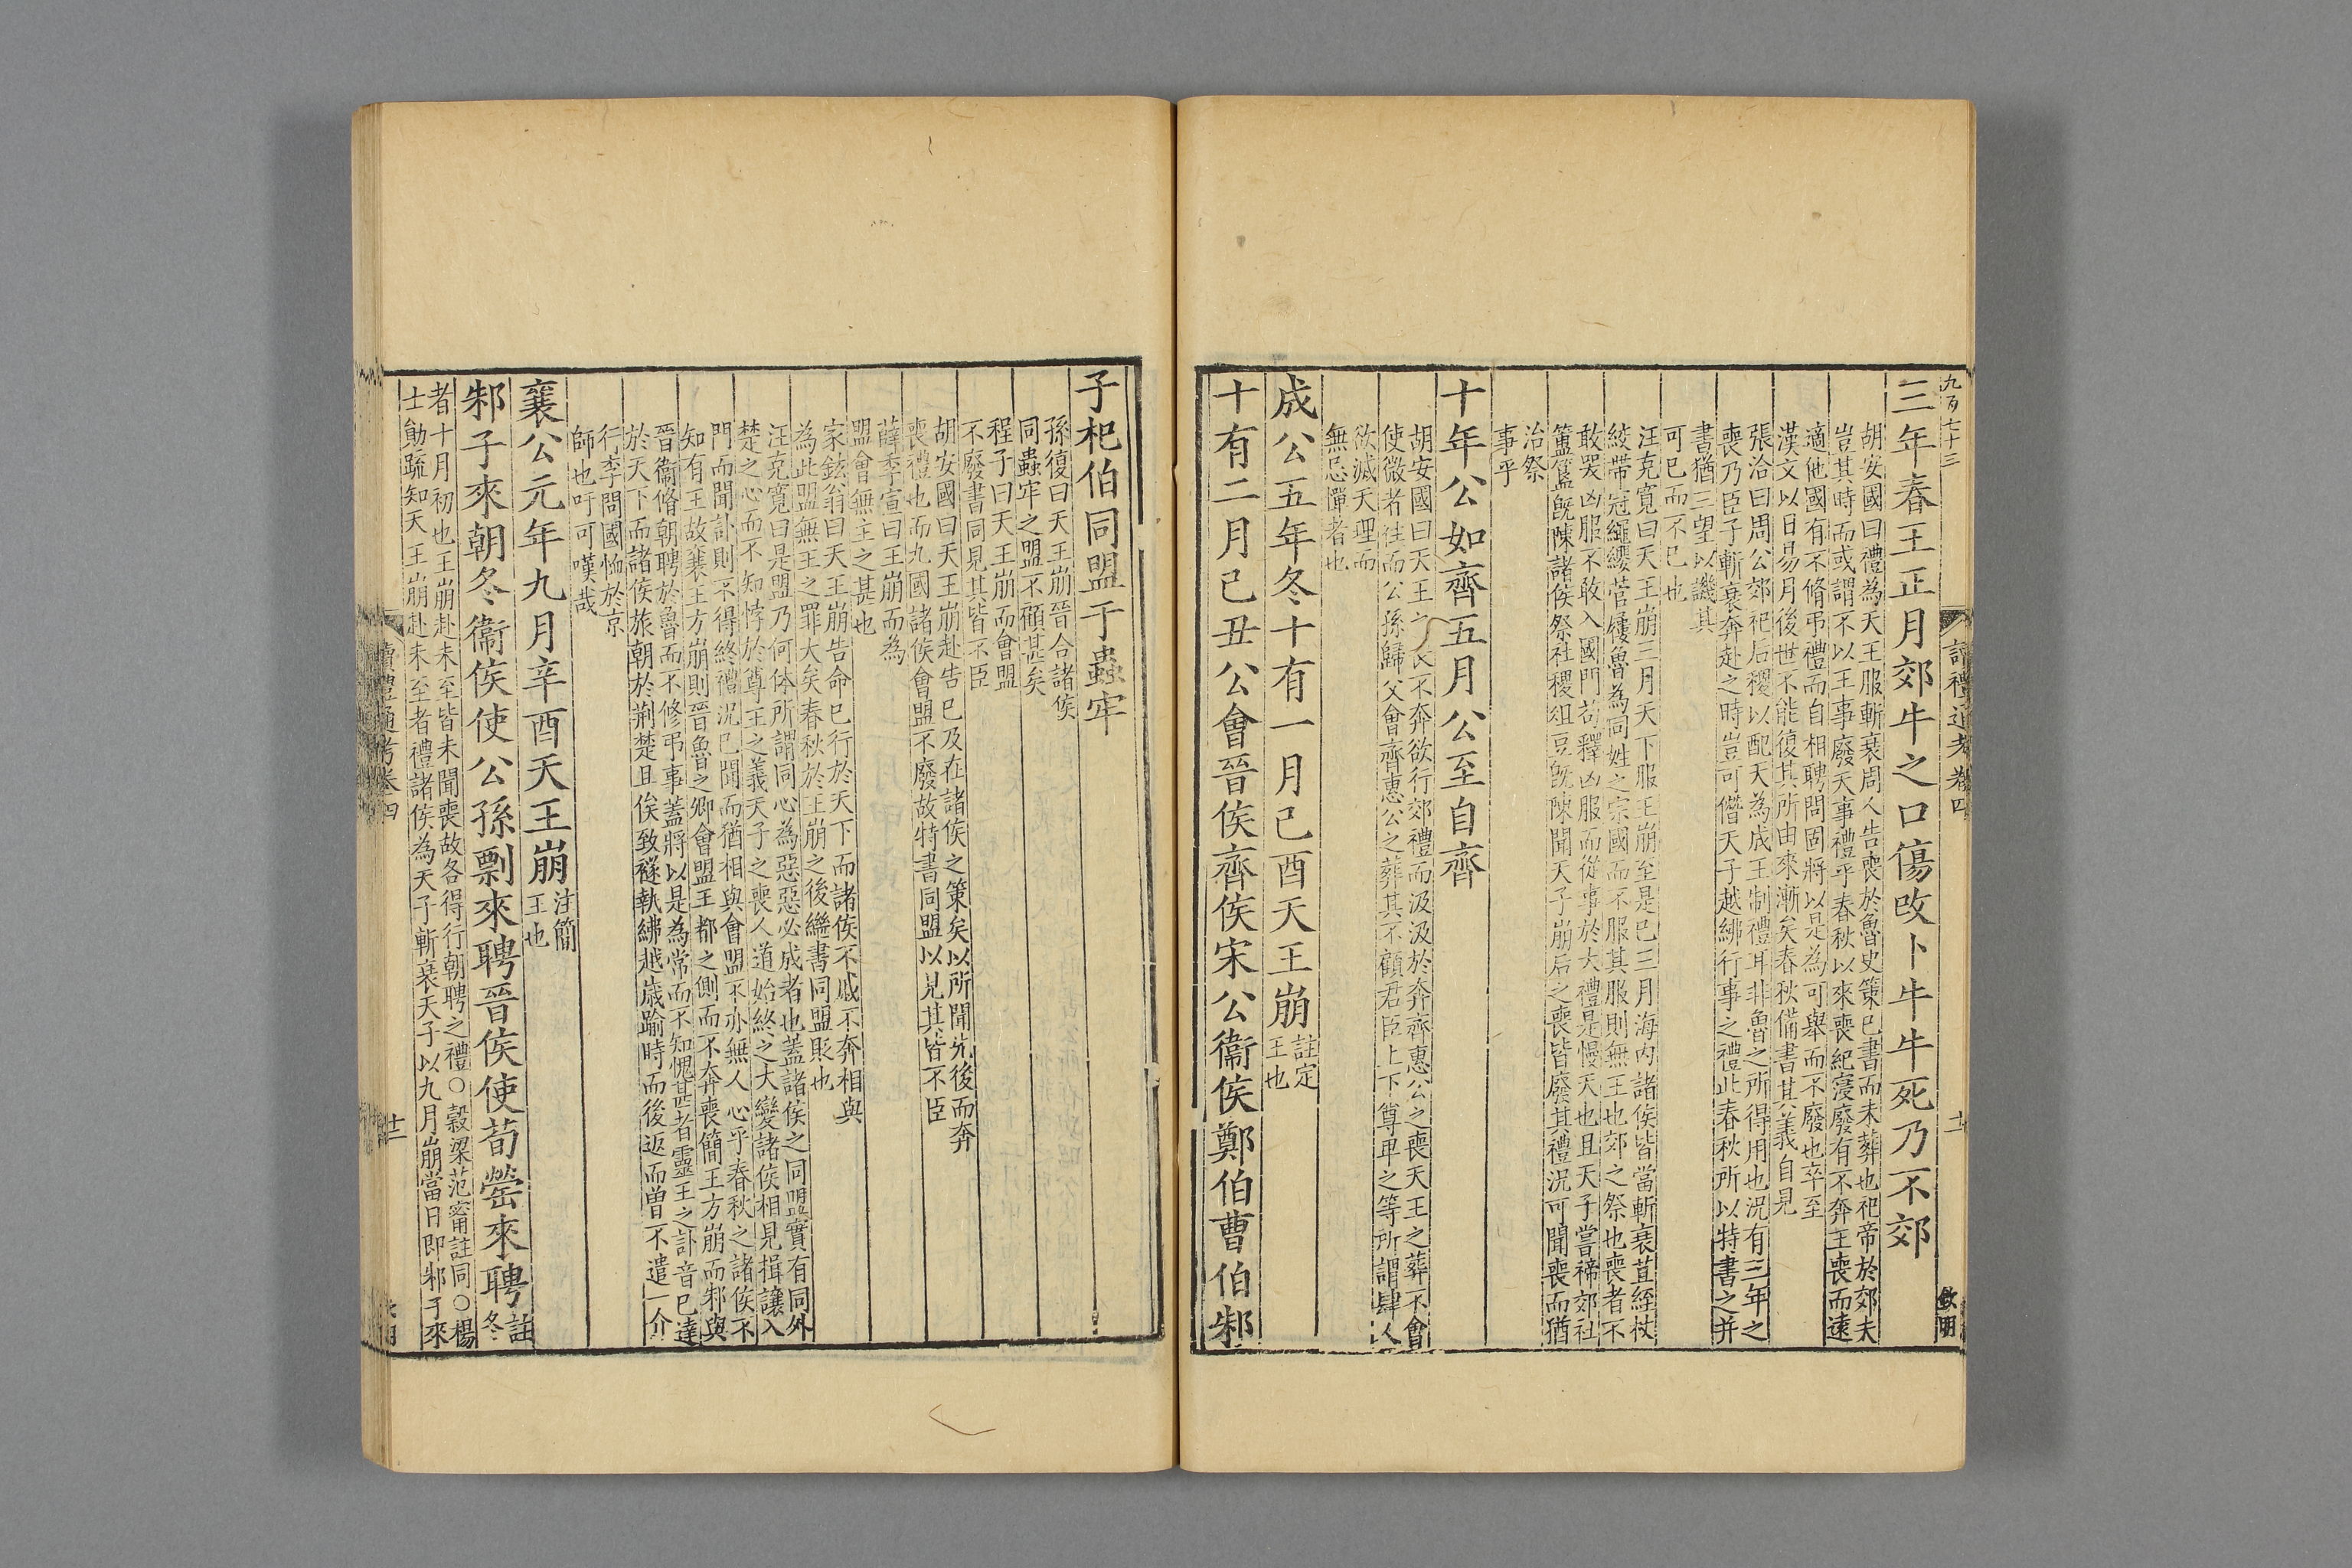 九百七十三
讀禮通考卷四
十一
欽明
三年春王正月郊牛之口傷改卜牛牛死乃不郊
胡安國曰禮為天王服斬衰周人告喪於魯史策已書而未葬也祀帝於郊夫
豈其時而或謂不以王事廢天事禮乎春秋以來喪紀寖廢有不奔王喪而遠
適他國有不脩弔禮而自相聘問固將以是為可舉而不廢也卒至
漢文以日易月後世不能復其所由來漸矣春秋備書其義自見
張洽曰周公郊祀后稷以配天為成王制禮耳非魯之所得用也況有三年之
喪乃臣子斬衰奔赴之時豈可僭天子越紼行事之禮此春秋所以特書之并
書猶三望以譏其
可已而不已也
汪克寬曰天王崩三月天下服王崩至是已三月海內諸侯皆當斬衰苴絰杖
絞帶冠繩纓菅屨魯為同姓之宗國而不服其服則無王也郊之祭也喪者不
敢哭凶服不敢入國門苟釋凶服而從事於大禮是慢天也且天子嘗禘郊社
簠簋既陳諸侯祭社稷俎豆既陳聞天子崩后之喪皆廢其禮況可聞喪而猶
治祭
事乎
十年公如齊五月公至自齊
胡安國曰天王之喪不奔欲行郊禮而汲汲於奔齊惠公之喪天王之葬不會
使微者往而公孫歸父會齊惠公之葬其不顧君臣上下尊卑之等所謂肆人
欲滅天理而
無忌憚者也
成公五年冬十有一月己酉天王崩註定
王也
十有二月己丑公會晉侯齊侯宋公衞侯鄭伯曹伯邾
子杞伯同盟于蟲牢
孫復曰天王崩晉合諸侯
同蟲牢之盟不顧甚矣
程子曰天王崩而會盟
不廢書同見其皆不臣
胡安國曰天王崩赴告已及在諸侯之策矣以所聞先後而奔
喪禮也而九國諸侯會盟不廢故特書同盟以見其皆不臣
薛季宣曰王崩而為
盟會無主之甚也
家鉉翁曰天王崩告命已行於天下而諸侯不戚不奔相與
為此盟無王之罪大矣春秋於王崩之後繼書同盟貶也
汪克寬曰是盟乃何休所謂同心為惡惡必成者也蓋諸侯之同盟實有同外
楚之心而不知悖於尊王之義天子之喪人道始終之大變諸侯相見揖讓入
門而聞訃則不得終禮況已聞而猶相與會盟不亦無人心乎春秋之諸侯不
知有王故襄王方崩則晉魯之卿會盟王都之側而不奔喪簡王方崩而邾與
晉衞脩朝聘於魯而不修弔事蓋將以是為常而不知愧甚者靈王之訃音已達
於天下而諸侯旅朝於荆楚且俟致襚執紼越歲踰時而後返而曾不遣一介
行李問國恤於京
師也吁可嘆哉
襄公元年九月辛酉天王崩注簡
王也
邾子來朝冬衞侯使公孫剽來聘晉侯使荀罃來聘註
冬
者十月初也王崩赴未至皆未聞喪故各得行朝聘之禮○穀梁范甯註同○楊
士勛疏知天王崩赴未至者禮諸侯為天子斬衰天子以九月崩當日即邾子來
讀禮通考卷四
十二